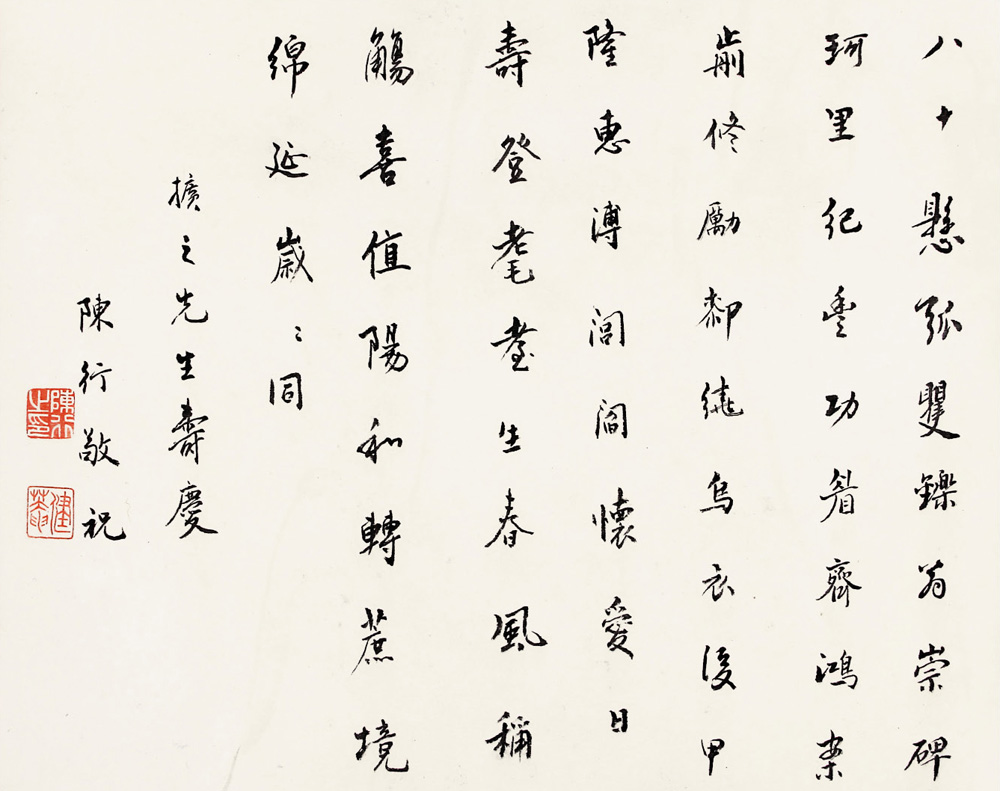 八十懸弧矍鑠翁崇碑
珂里紀豐功眉齊鴻案
歬修勵厀繞烏衣後甲
隆惠溥閭閻懷愛日
壽登耄耋生春風稱
觴喜值陽和轉蔗境
綿延歲〻同
擴之先生壽慶
陳行敬祝
陳行之印